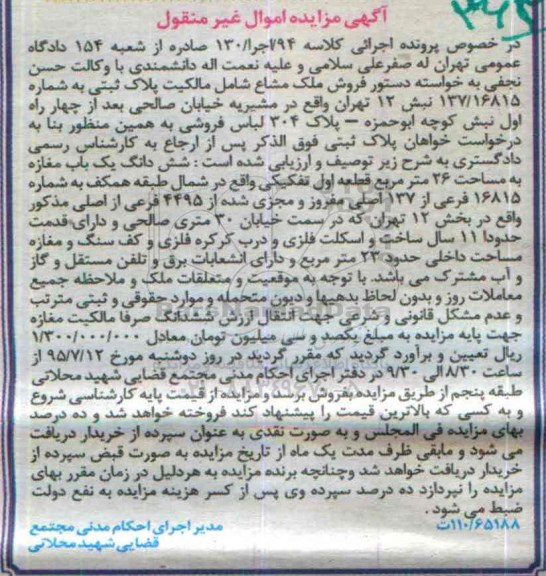 آگهی مزایده اموال غیر منقول
در خصوص پرونده اجرائی کلاسه ۹۴/اجرا/۱۳۰ صادره از شعبه ۱۵۴ دادگاه
عمومی تهران له صفرعلی سلامی و علیه نعمت اله دانشمندی با وکالت حسن
نجفی به خواسته دستور فروش ملک مشاع شامل مالکیت پلاک ثبتی به شماره
۱۳۷/۱۶۸۱۵ نبش ۱۲ تهران واقع در مشیریه خیابان صالحی بعد از چهار راه
اول نبش کوچه ابوحمزه – پلاک ۳۰۴ لباس فروشی به همین منظور بنا به
درخواست خواهان پلاک ثبتی فوق الذکر پس از ارجاع به کارشناس رسمی
دادگستری به شرح زیر توصیف و ارزیابی شده است: شش دانگ یک باب مغازه
به مساحت ۲۶ متر مربع قطعه اول تفکیکی واقع در شمال طبقه همکف به شماره
۱۶۸۱۵ فرعی از ۱۳۷ اصلی مفروز و مجزی شده از ۴۴۹۵ فرعی از اصلی مذکور
واقع در بخش ۱۲ تهران که در سمت خیابان ۳۰ متری صالحی و دارای قدمت
حدودا ۱۱ سال ساخت و اسکلت فلزی و درب کرکره فلزی و کف سنگ و مغازه
مساحت داخلی حدود ۲۳ متر مربع و دارای انشعابات برق و تلفن مستقل و گاز
و آب مشترک می باشد. با توجه به موقعیت و متعلقات ملک و ملاحظه جمیع
معاملات روز و بدون لحاظ بدهیها و دیون متحمله و موارد حقوقی و ثبتی مترتب
و عدم مشکل قانونی و شرعی جهت انتقال ارزش ششدانگ صرفا مالکیت مغازه
جهت پایه مزایده به مبلغ یکصد و سی میلیون تومان معادل ۱/۳۰۰/۰۰۰/۰۰۰
ریال تعیین و برآورد گردید که مقرر گردید در روز دوشنبه مورخ ۹۵/۷/۱۲ از
ساعت ۸/۳۰ الی ۹/۳۰ در دفتر اجرای احکام مدنی مجتمع قضایی شهید محلاتی
طبقه پنجم از طریق مزایده بفروش برسد و مزایده از قیمت پایه کارشناسی شروع
و به کسی که بالاترین قیمت را پیشنهاد کند فروخته خواهد شد و ده درصد
بهای مزایده فی المجلس و به صورت نقدی به عنوان سپرده از خریدار دریافت
می شود و مابقی ظرف مدت یک ماه از تاریخ مزایده به صورت قبض سپرده از
خریدار دریافت خواهد شد وچنانچه برنده مزایده به هردلیل در زمان مقرر بهای
مزایده را نپردازد ده درصد سپرده وی پس از کسر هزینه مزایده به نفع دولت
ضبط می شود.
۱۱۰/۶۵۱۸۸ت
مدیر اجرای احکام مدنی مجتمع
قضایی شهید محلاتی